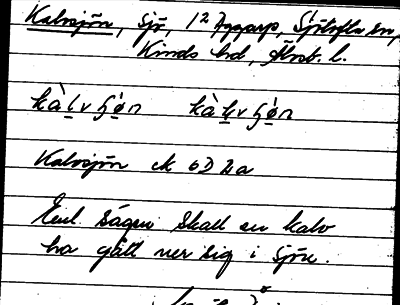 Kalvsjön, sjö, 12 Aggarp, Sjötofta sn,
Kinds hd, Älvsb. l.
kàlvʃøn kàlvʃøn
Kalvsjön ek 6D 2a
Enl. sägen skall en kalv
ha gått ner sig i sjön.